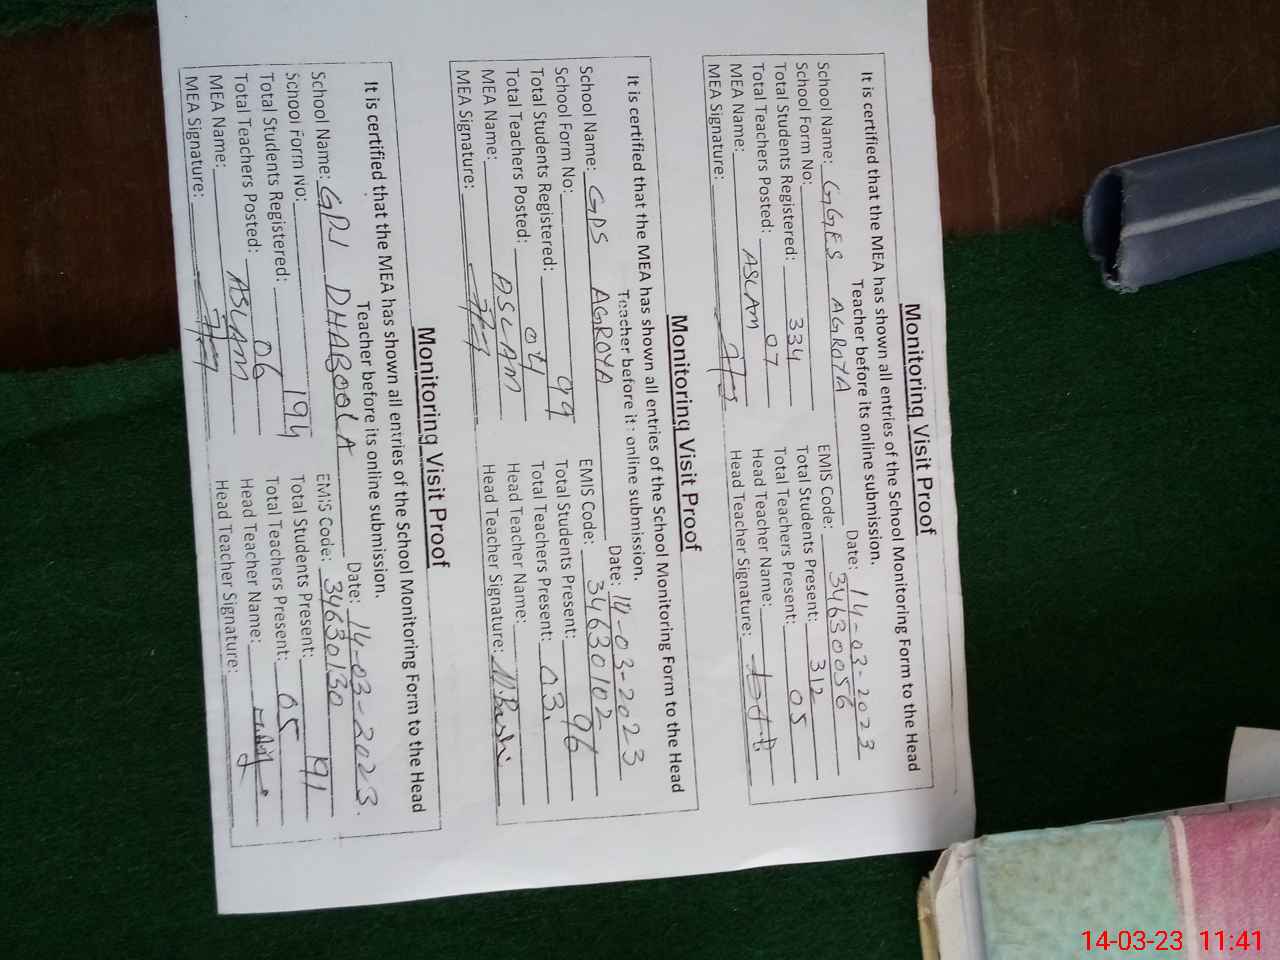 Monitoring Visit Proof
It is certified that the MEA has shown all entries of the School Monitoring Form to the Head
Teacher before its online submission.
Date: 14-03-2023
School Name: GGES AGROYA EMIS Code: 34630056
School Form No: Total Students Present: 312
Total Students Registered: 334 Total Teachers Present: 05
Total Teachers Posted: 07 Head Teacher Name:
MEA Name: ASLAM Head Teacher Signature:
MEA Signature:
Monitoring Visit Proof
It is certified that the MEA has shown all entries of the School Monitoring Form to the Head
Teacher before it: online submission.
Date: 14-03-2023
School Name: GPS AGROYA EMIS Code: 34630102
School Form No: 99 Total Students Present: 96
Total Students Registered: Total Teachers Present: 03
Total Teachers Posted: 04 Head Teacher Name:
MEA Name: ASLAM Head Teacher Signature:
MEA Signature:
Monitoring Visit Proof
It is certified that the MEA has shown all entries of the School Monitoring Form to the Head
Teacher before its online submission.
Date: 14-03-2023.
School Name: GPS DHABOOLA EMIS Code: 34630130
School Form No: 194 Total Students Present: 191
Total Students Registered: Total Teachers Present: 05
Total Teachers Posted: 06 Head Teacher Name:
MEA Name: ASLAM Head Teacher Signature:
MEA Signature:
14-03-23 11:41